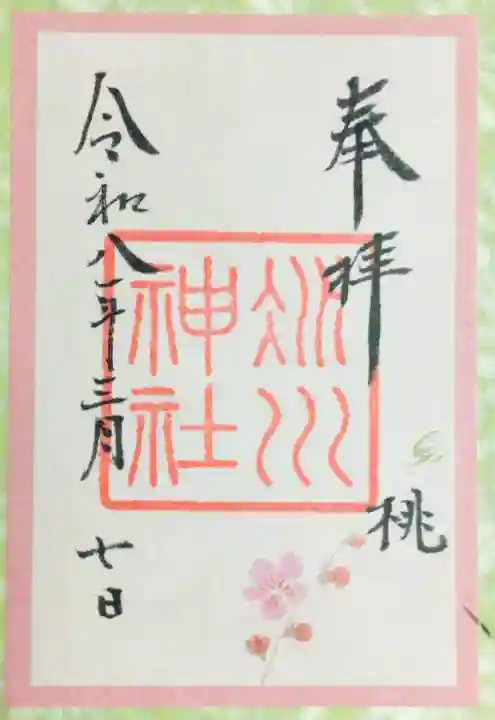 奉拝
桃
冰川
神社
令和八年三月七日